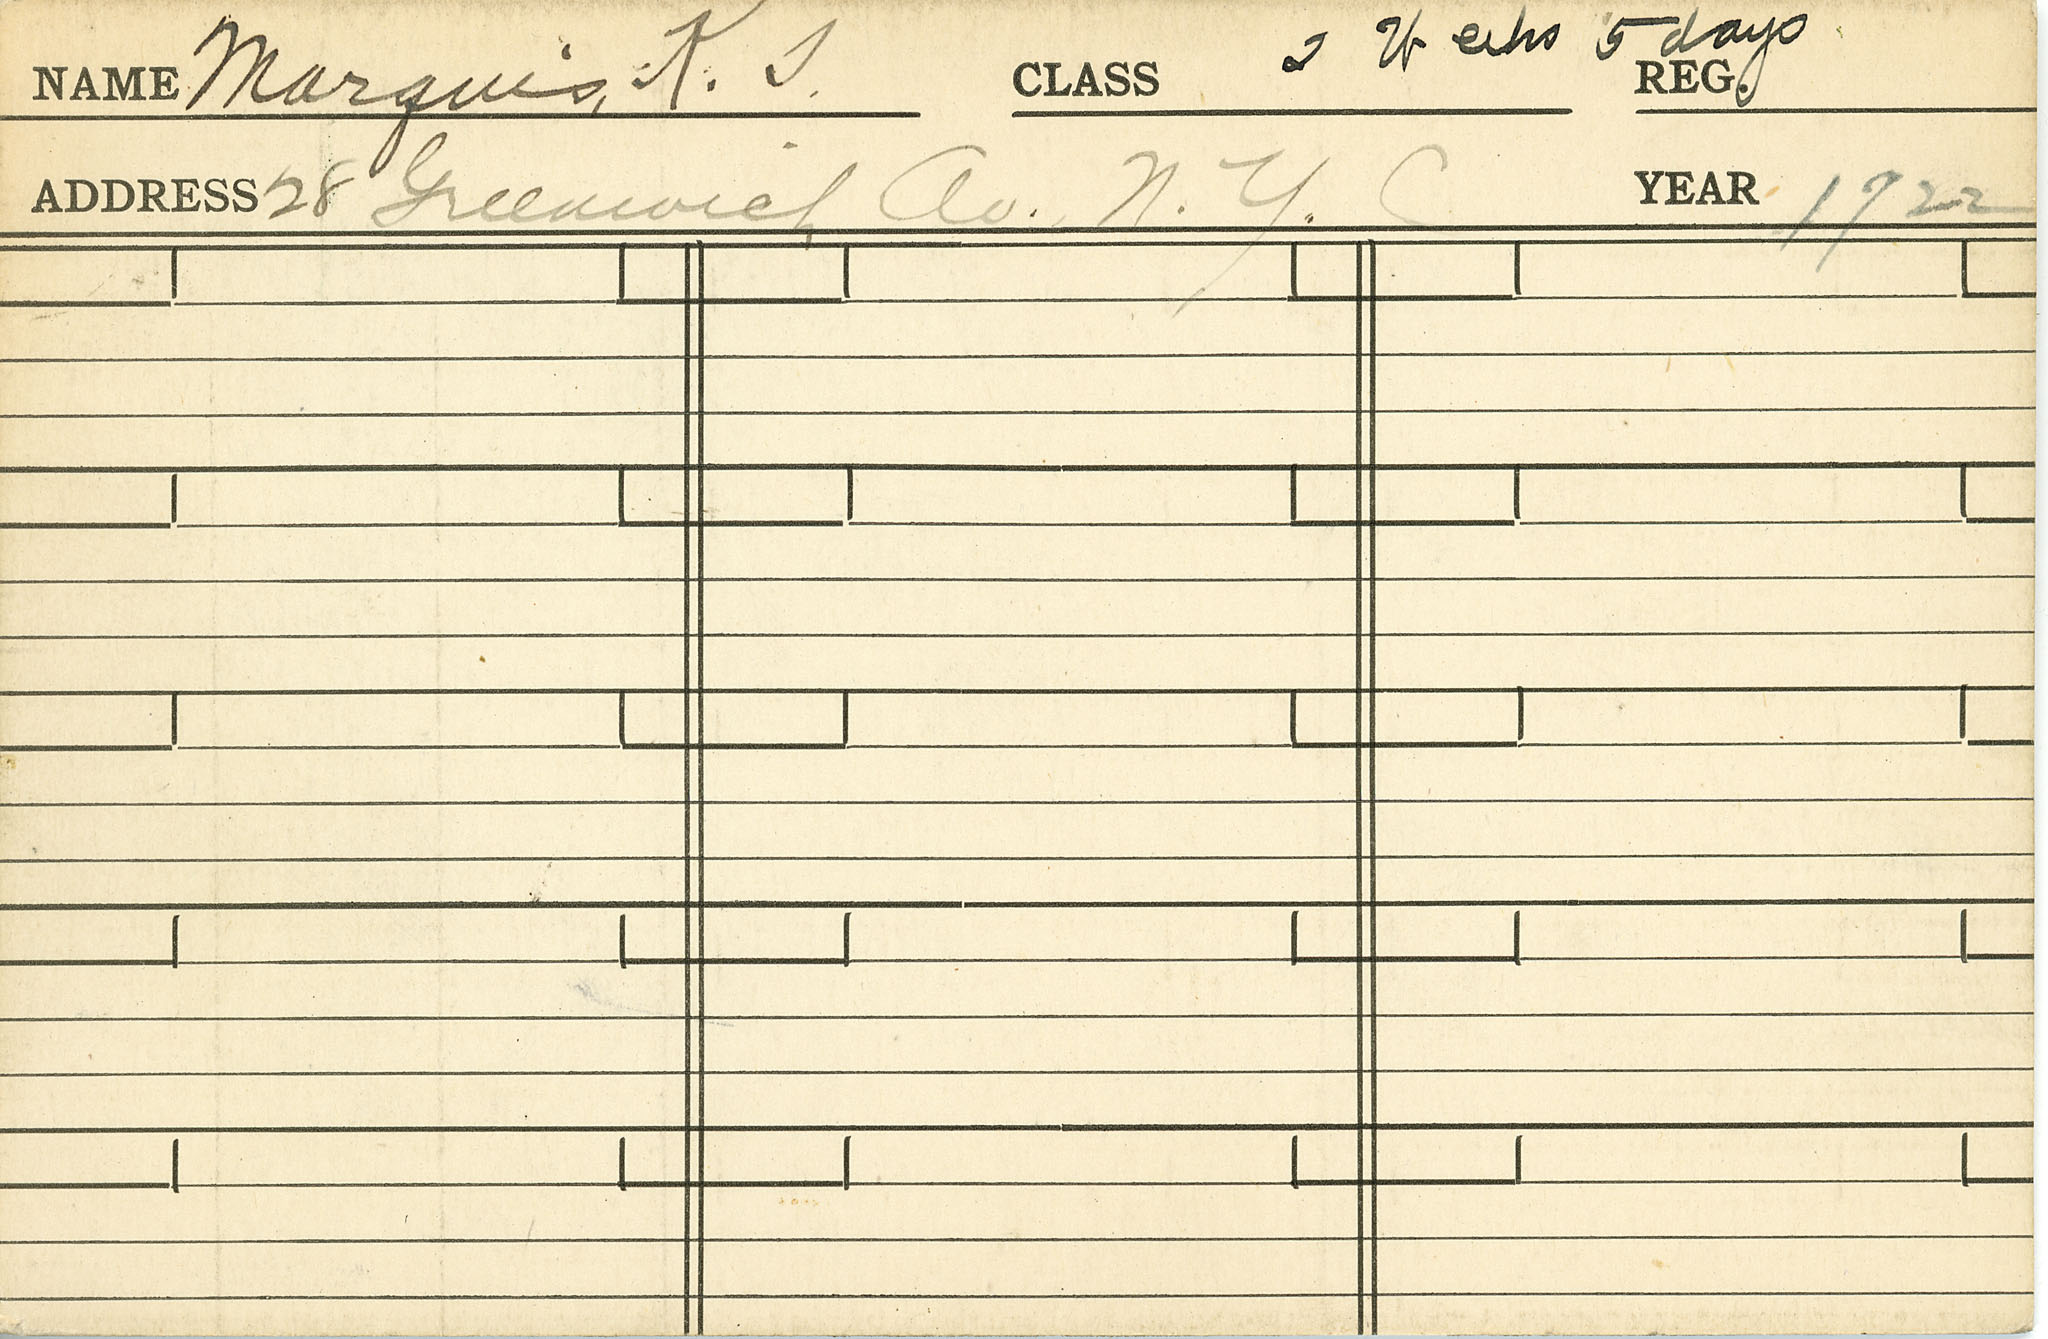 NAME Marquis, K. S. CLASS 2 Weeks 5 days REG.
ADDRESS 28 Greenwich Av., N. Y. C YEAR 1922